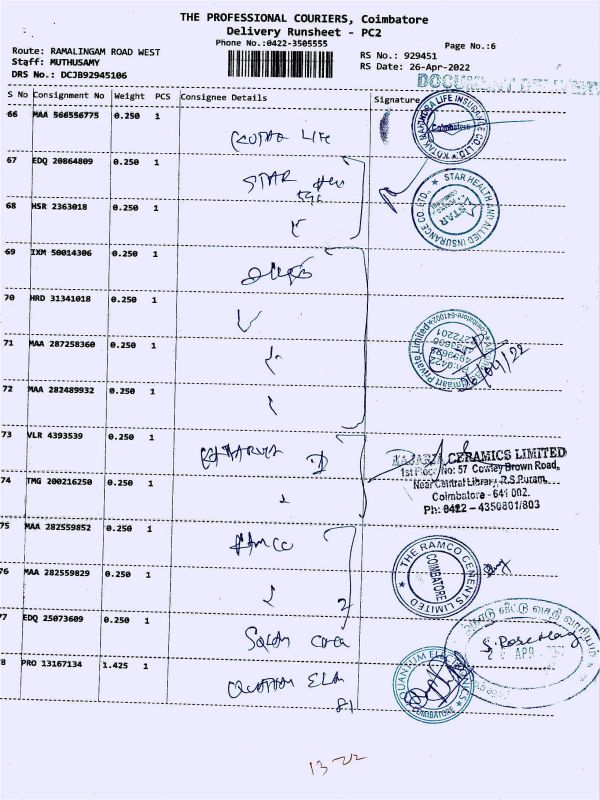 THE PROFESSIONAL COURIERS, Coimbatore
Delivery Runsheet - PC2
Phone No.:0422-3505555
Page No.:6
Route: RAMALINGAM ROAD WEST
Staff: MUTHUSAMY
DRS No.: DCJB92945106
RS No.: 929451
RS Date: 26-Apr-2022
S No Consignment No Weight PCS Consignee Details Signature
66 MAA 566556775 0.250 1
KOTAK LIFE
MAHINDRA LIFE INSURANCE CO. LTD.
Coimbatore
67 EDQ 20864809 0.250 1
STAR
STAR HEALTH AND ALLIED INSURANCE CO. LTD.,
STAR
68 HSR 2363018 0.250 1
69 IXM 50014306 0.250 1
70 HRD 31341018 0.250 1
71 MAA 287258360 0.250 1
Private Limited
Coimbatore-641002
26/04/22
72 MAA 282489932 0.250 1
73 VLR 4393539 0.250 1
KAJARIA CERAMICS LIMITED
1st Floor, No: 57 Cowley Brown Road,
Near Central Library, R.S.Puram,
Coimbatore - 641 002.
Ph: 0422 - 4350801/803
74 TMG 200216250 0.250 1
75 MAA 282559852 0.250 1
RAMCO
THE RAMCO CEMENTS LIMITED
COIMBATORE
76 MAA 282559829 0.250 1
77 EDQ 25073609 0.250 1
APR
78 PRO 13167134 1.425 1
QUANTUM ELE
QUANTUM ELECTRONICS
COIMBATORE
13-22